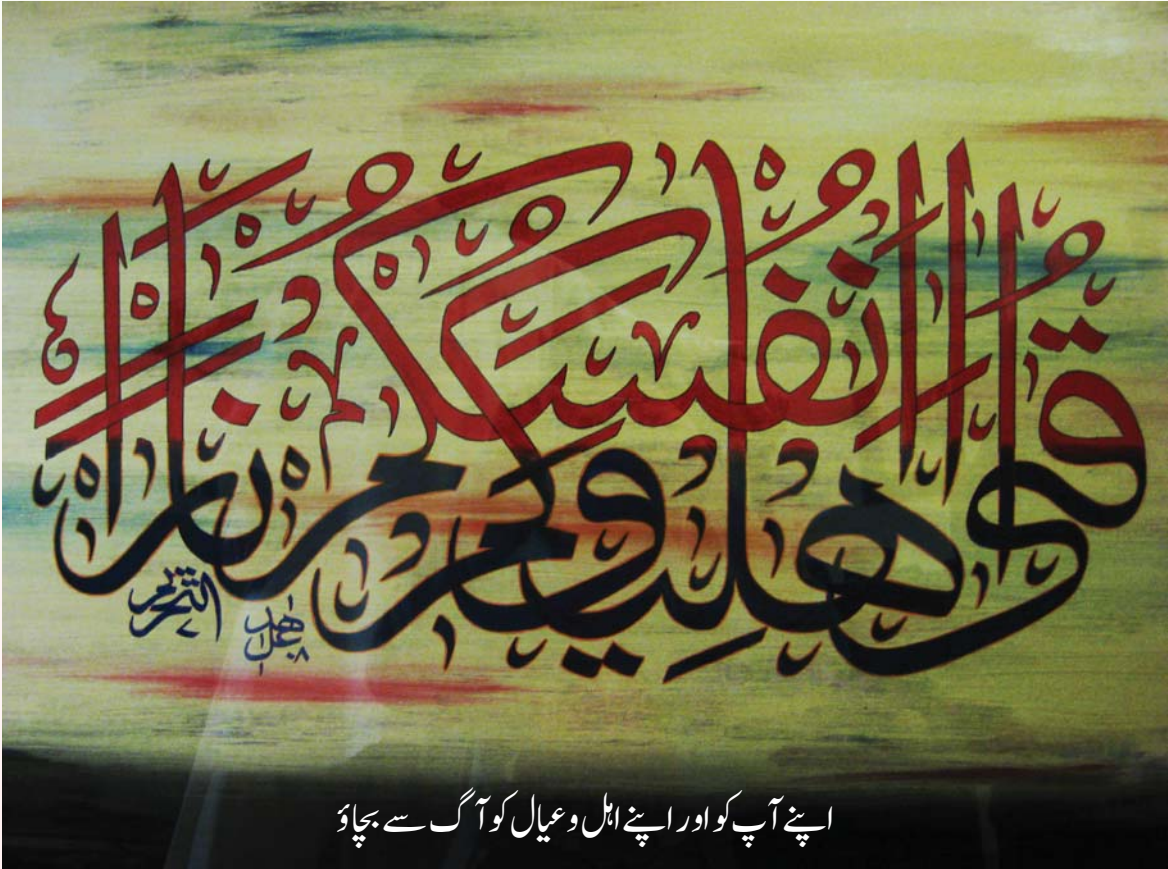 قوا انفسكم واهليكم نارا
التحريم
اپنے آپ کو اور اپنے اہل و عیال کو آگ سے بچاؤ